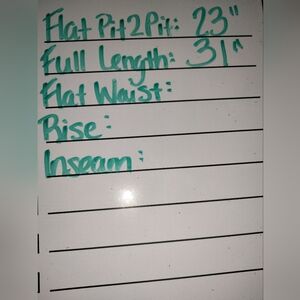 Flat Pit2Pit: 23"
Full Length: 31"
Flat Waist:
Rise:
Inseam: